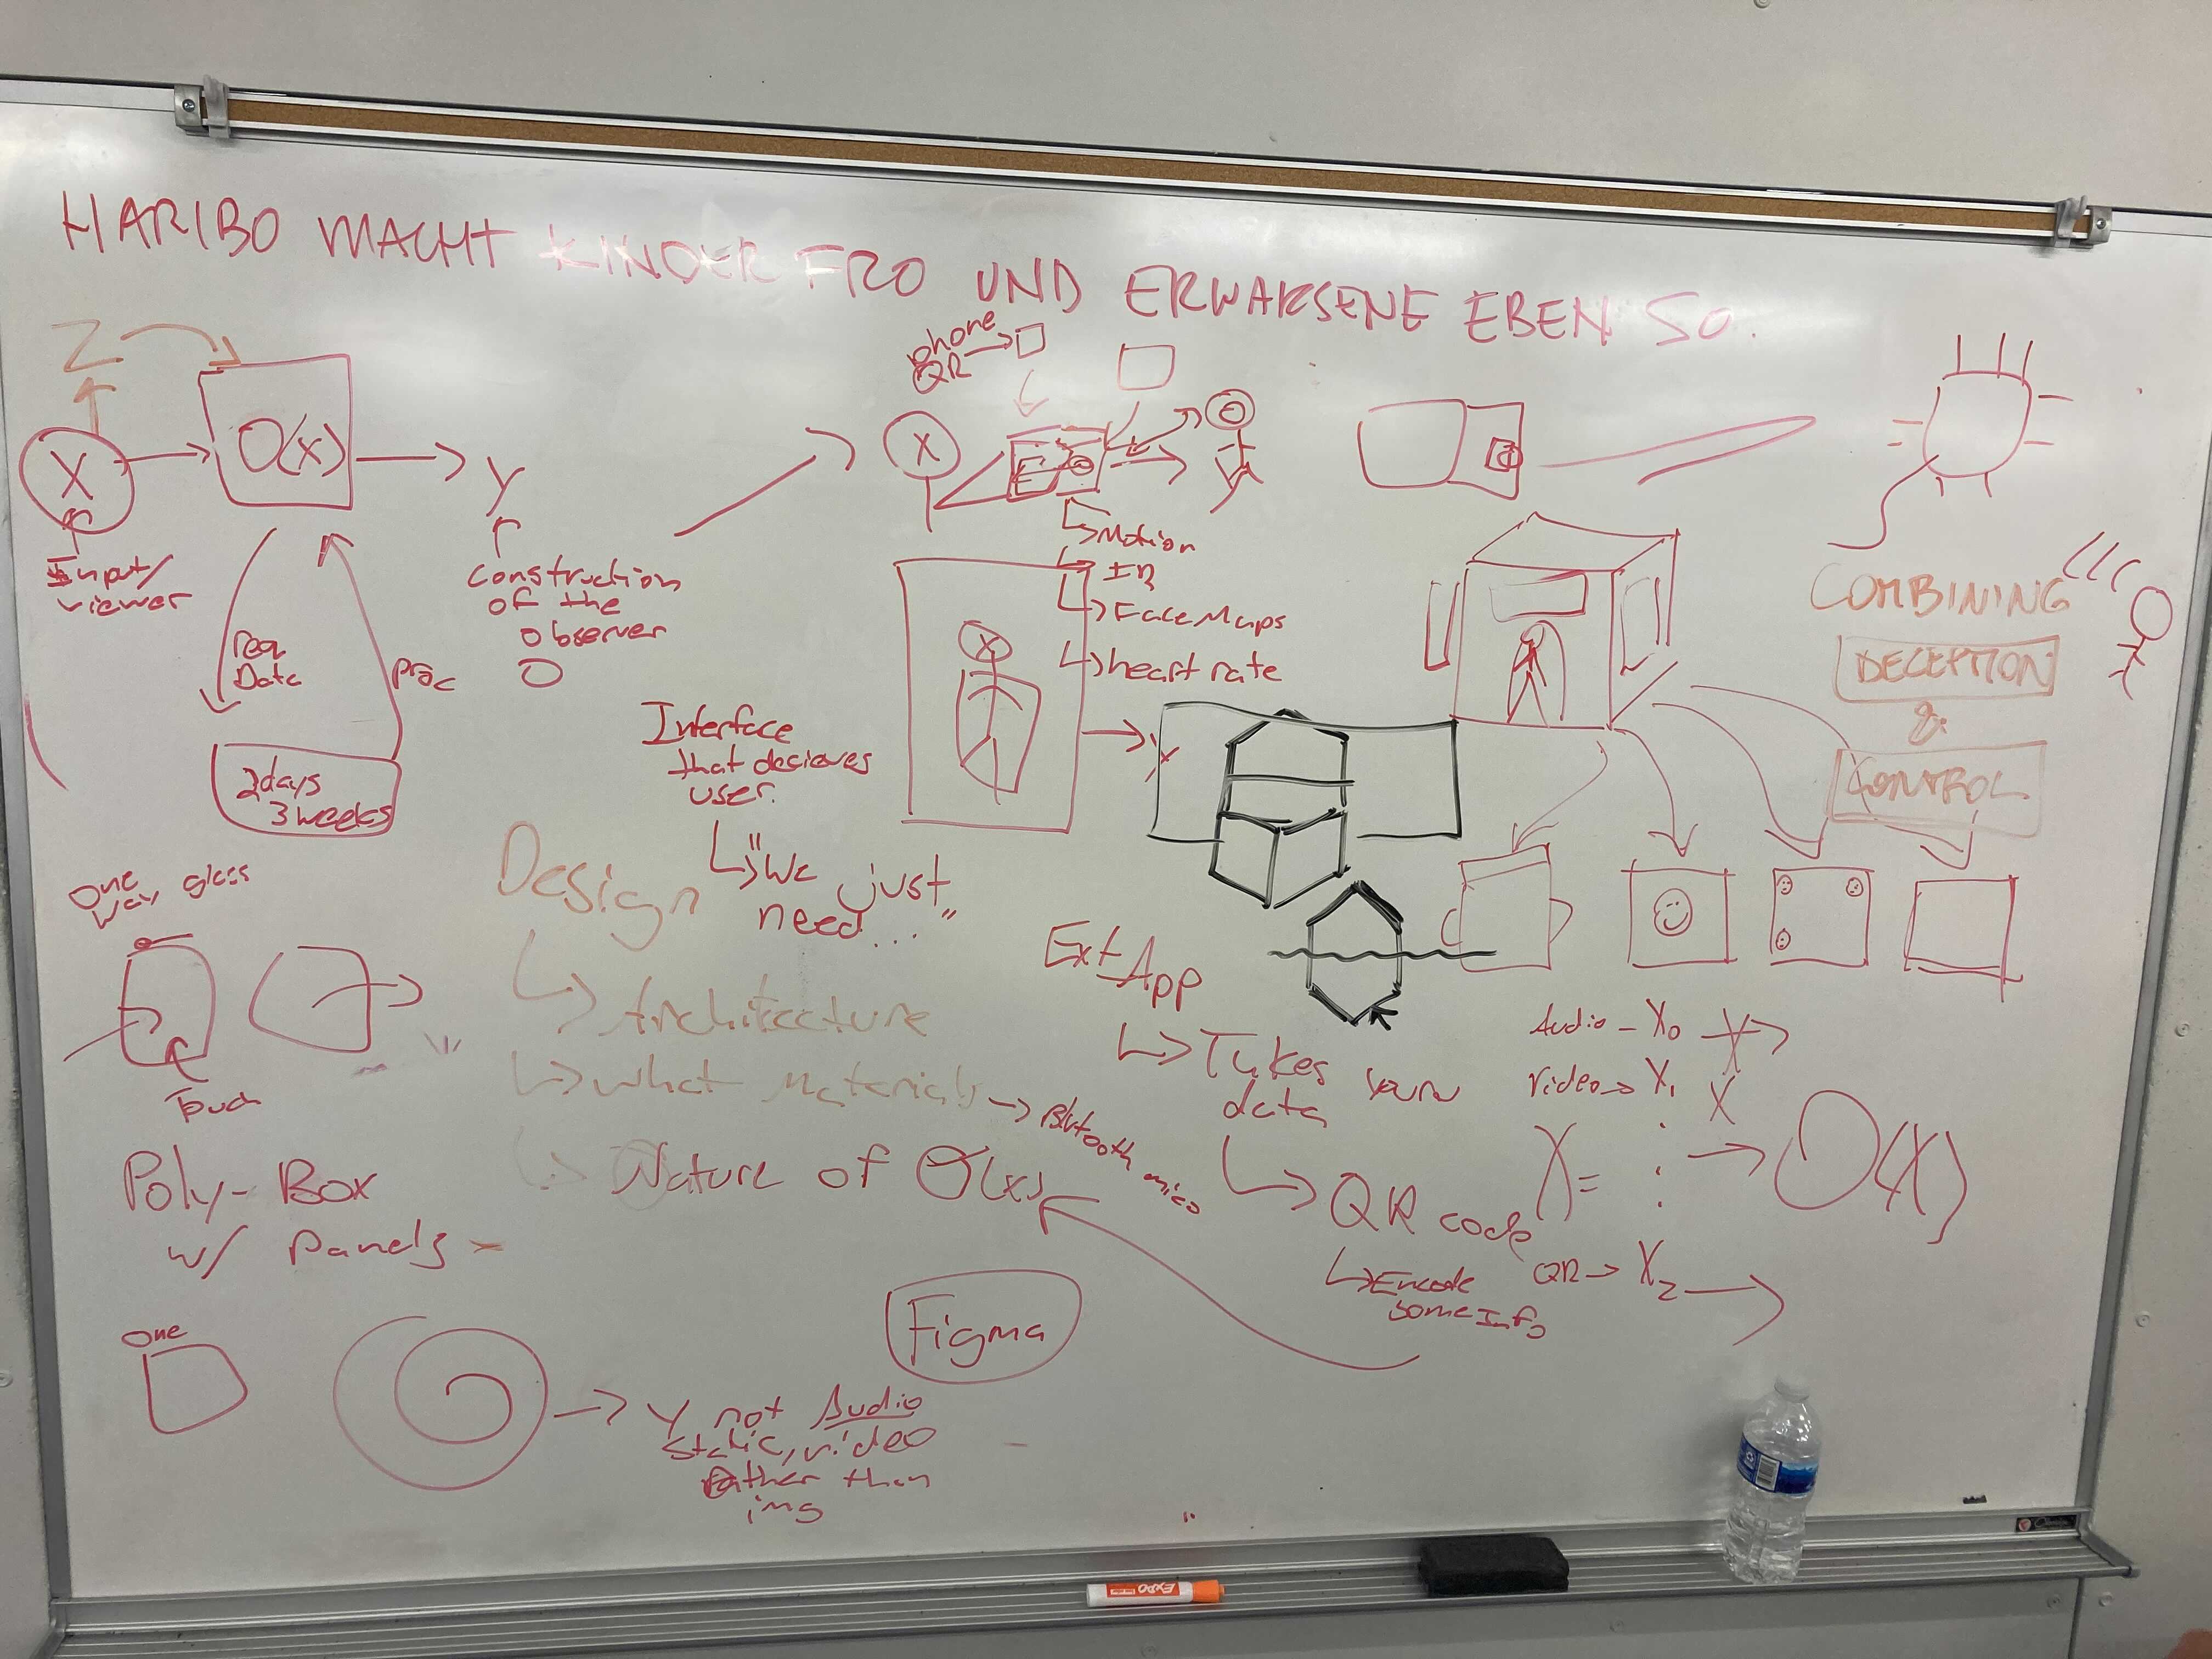 HARIBO MACHT KINDER FRO UND ERWAKSENE EBEN SO.
Z
X
O(x)
y
Input/
viewer
req
Data
proc
2 days
3 weeks
construction
of the
observer
O
phone
QR
X
Motion
IR
Face Maps
heart rate
X
Y
Interface
that decieves
user.
"We just
need..."
COMBINING
DECEPTION
&
CONTROL
One
way glass
Touch
Design
Architecture
what Materials
Blutooth mics
Nature of O(x)
Poly-Box
w/ Panels
One
y not Audio
static, video
rather than
img
Figma
Ext App
Takes your
data
QR code
Encode
some Info
Audio - X0
Video → X1
X =
QR → X2
O(X)
EXPO